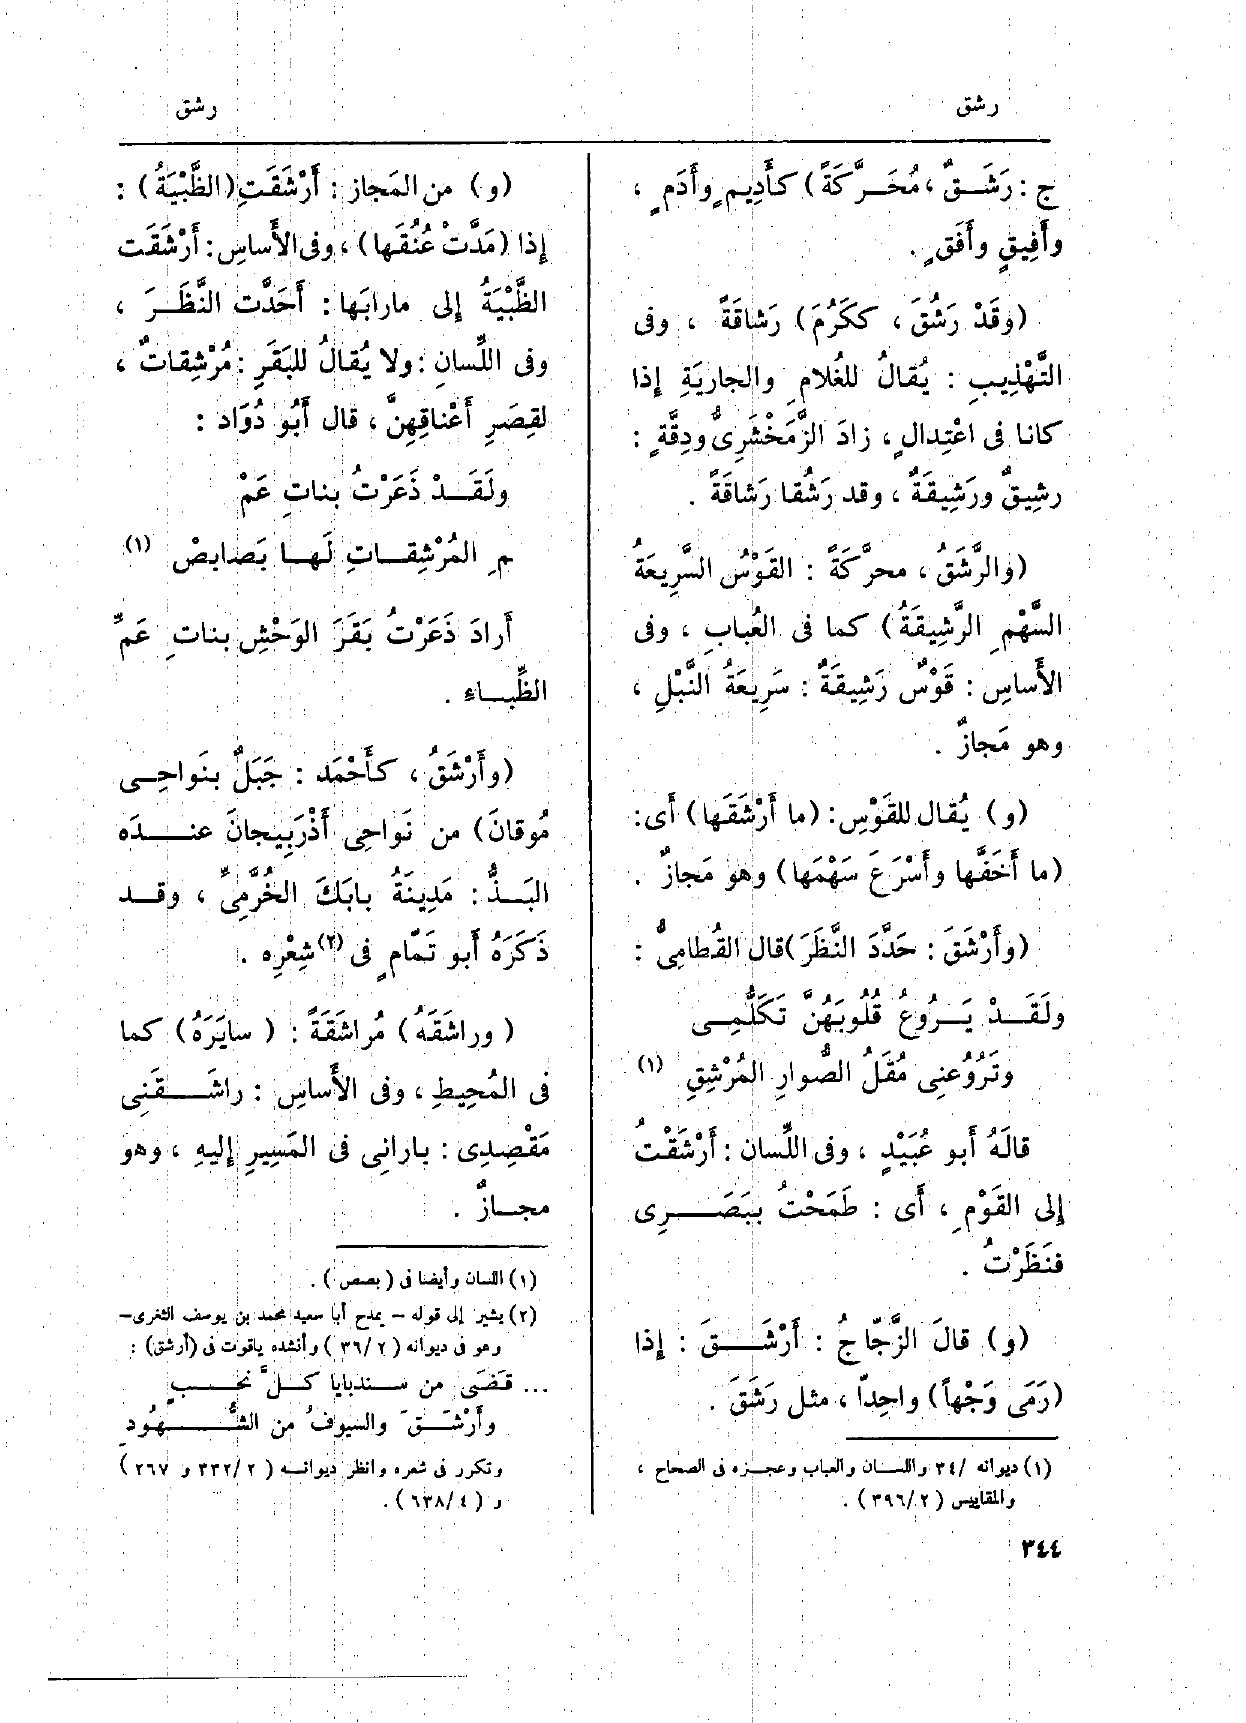 رشق
رشق
ج : رَشَقٌ ، مُحَرَّكَةً) كأَدِيمٍ وأَدَمٍ ،
وأَفِيقٍ وأَفَقٍ .
(وقَدْ رَشُقَ ، ككَرُمَ) رَشاقَةً ، وفى
التَّهْذِيبِ : يُقالُ للغُلامِ والجارِيَةِ إذا
كانا فى اعْتِدالٍ ، زادَ الزَّمَخْشَرِىُّ ودِقَّةٍ :
رشِيقٌ ورَشِيقَةٌ ، وقد رَشُقا رَشاقَةً .
(والرَّشَقُ ، محرَّكَةً : القَوْسُ السَّرِيعَةُ
السَّهْمِ الرَّشِيقَةُ) كما فى العُبابِ ، وفى
الأَساسِ : قَوْسٌ رَشِيقَةٌ : سَرِيعَةُ النَّبْلِ ،
وهو مَجازٌ .
(و) يُقال للقَوْسِ : (ما أَرْشَقَها) أَى :
(ما أَخَفَّها وأَسْرَعَ سَهْمَها) وهو مَجازٌ .
(وأَرْشَقَ : حَدَّدَ النَّظَرَ) قال القُطامِىُّ :
ولَقَدْ يَرُوعُ قُلُوبَهُنَّ تَكَلُّمِى
وتَرُوعُنِى مُقَلُ الصُّوارِ المُرْشِقِ (١)
قالَهُ أَبو عُبَيْدٍ ، وفى اللِّسان : أَرْشَقْتُ
إلى القَوْمِ ، أَى : طَمَحْتُ ببَصَرِى
فنَظَرْتُ .
(و) قالَ الزَّجّاجُ : أَرْشَقَ : إذا
(رَمَى وَجْهاً) واحِدًا ، مثل رَشَقَ .
(١) ديوانه /٣٤ واللسان والعباب وعجزه فى الصحاح ،
والمقاييس (٣٩٦/٢) .
٣٤٤
(و) من المَجاز : أَرْشَقَتِ (الظَّبْيَةُ) :
إذا (مَدَّتْ عُنُقَها) ، وفى الأَساسِ : أَرْشَقَت
الظَّبْيَةُ إلى مارابَها : أَحَدَّت النَّظَرَ ،
وفى اللِّسانِ : ولا يُقالُ للبَقَرِ : مُرْشِقاتٌ ،
لقِصَرِ أَعْناقِهِنَّ ، قال أَبُو دُوَاد :
ولَقَدْ ذَعَرْتُ بناتِ عَمْ
مِ المُرْشِقاتِ لَها بَصابِصْ (١)
أَرادَ ذَعَرْتُ بَقَرَ الوَحْشِ بناتِ عَمِّ
الظِّباء .
(وأَرْشَقُ ، كأَحْمَد : جَبَلٌ بنَواحِى
مُوقانَ) من نَواحِى أَذْرَبِيجانَ عندَه
البَذُّ : مَدِينَةُ بابَكَ الخُرَّمِىِّ ، وقد
ذَكَرَهُ أَبو تَمّامٍ فى (٢) شِعْرِه .
(وراشَقَهُ) مُراشَقَةً : (سايَرَهُ) كما
فى المُحِيطِ ، وفى الأَساسِ : راشَقَنِى
مَقْصِدِى : بارانِى فى المَسِيرِ إليهِ ، وهو
مجازٌ .
(١) اللسان وأيضا فى (بصص) .
(٢) يشير إلى قوله – يمدح أبا سعيد محمد بن يوسف الثغرى –
وهو فى ديوانه (٣٦/٢) وأنشده ياقوت فى (أرشق) :
... قَضَى من سندبايا كلَّ نحبٍ
وأَرْشَقَ والسيوفُ من الشُّهُودِ
وتكرر فى شعره وانظر ديوانه (٣٣٢/٢ و ٢٦٧)
و (٦٣٨/٤) .